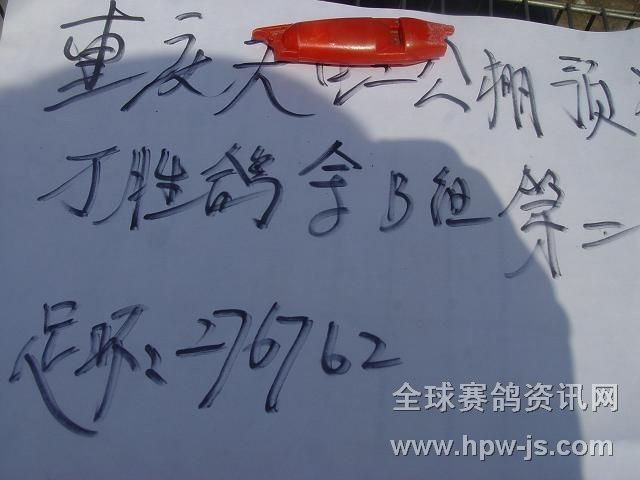 重庆大江公棚预
丁胜鸽拿B组第二
足环:276762
全球赛鸽资讯网
www.hpw-js.com